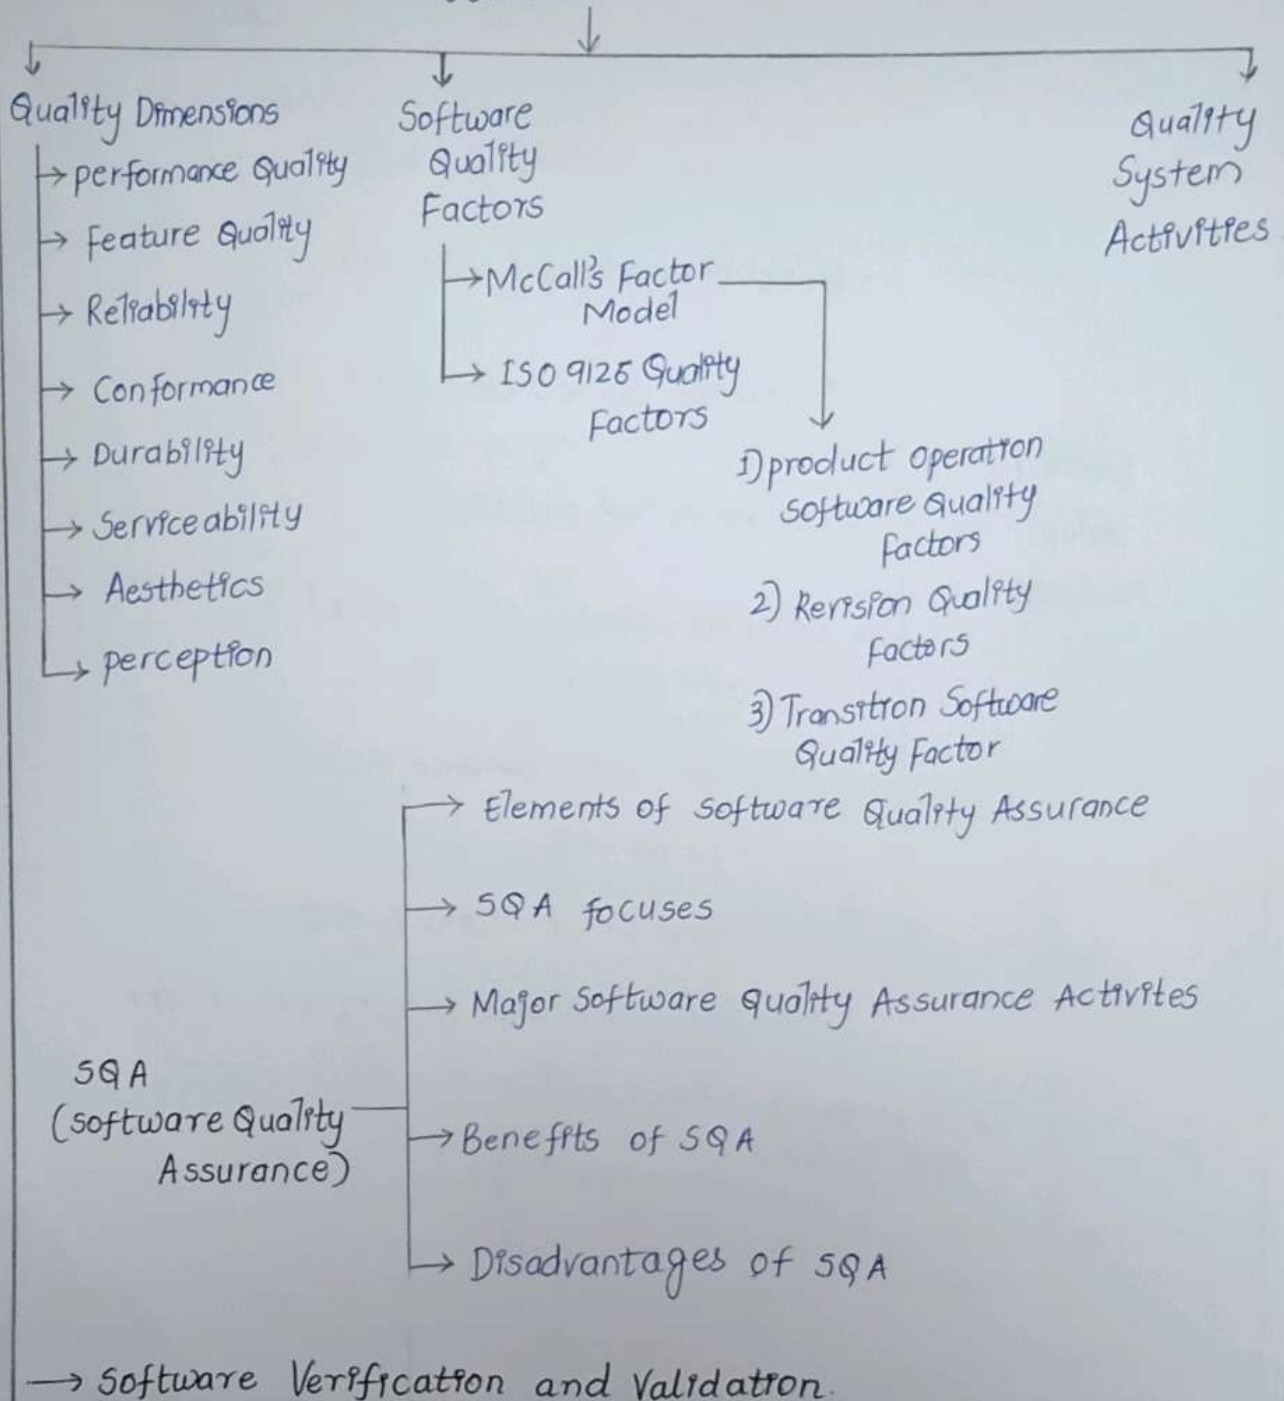 Quality Dimensions
→ performance Quality
→ Feature Quality
→ Reliability
→ Conformance
→ Durability
→ Serviceability
→ Aesthetics
→ perception
Software
Quality
Factors
→ McCall's Factor
Model
→ ISO 9126 Quality
Factors
1) product operation
Software Quality
factors
2) Revision Quality
factors
3) Transition Software
Quality Factor
Quality
System
Activities
SQA
(Software Quality
Assurance)
→ Elements of Software Quality Assurance
→ SQA focuses
→ Major Software Quality Assurance Activites
→ Benefits of SQA
→ Disadvantages of SQA
→ Software Verification and Validation.